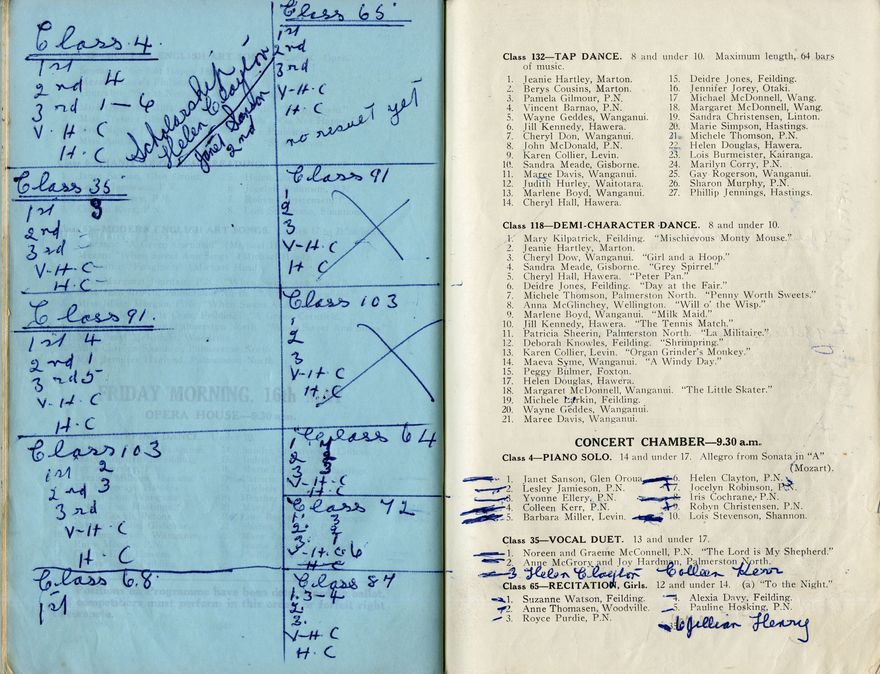 Class 4
1st
2nd 4
3rd 1-6
V.H.C
H.C
Scholarship
Helen Clayton
Janet Sanson
2nd
Class 35
1st 3
2nd -
3rd -
V-H-C-
H.C-
Class 91.
1st 4
2nd 1
3rd 5
V-H.C
H.C
Class 103
1st 2
2nd 3
3rd
V-H.C
H.C
Class 68
1st
Class 65
1st
2nd
3rd
V-H-C
H.C.
no result yet
Class 91
1
2
3
V-H.C
H C
Class 103
1
2
3
V-H.C
H.C.
Class 64
1
2
3
V-H-C
H-C
Class 72
1. 3
2. 2
3. 1
V-H.C.6
H-C
Class 87
1. 3-4
2.
3.
V-H-C
H.C
FRIDAY MORNING, 16th
OPERA HOUSE—9.30 a.m.
Class 132—TAP DANCE. 8 and under 10. Maximum length, 64 bars
of music.
1. Jeanie Hartley, Marton.
2. Berys Cousins, Marton.
3. Pamela Gilmour, P.N.
4. Vincent Barnao, P.N.
5. Wayne Geddes, Wanganui.
6. Jill Kennedy, Hawera.
7. Cheryl Don, Wanganui.
8. John McDonald, P.N.
9. Karen Collier, Levin.
10. Sandra Meade, Gisborne.
11. Maree Davis, Wanganui.
12. Judith Hurley, Waitotara.
13. Marlene Boyd, Wanganui.
14. Cheryl Hall, Hawera.
15. Deidre Jones, Feilding.
16. Jennifer Jorey, Otaki.
17 Michael McDonnell, Wang.
18. Margaret McDonnell, Wang.
19. Sandra Christensen, Linton.
20. Marie Simpson, Hastings.
21. Michele Thomson, P.N.
22. Helen Douglas, Hawera.
23. Lois Burmeister, Kairanga.
24. Marilyn Corry, P.N.
25. Gay Rogerson, Wanganui.
26. Sharon Murphy, P.N.
27. Phillip Jennings, Hastings.
Class 118—DEMI-CHARACTER DANCE. 8 and under 10.
1. Mary Kilpatrick, Feilding. "Mischievous Monty Mouse."
2. Jeanie Hartley, Marton.
3. Cheryl Dow, Wanganui. "Girl and a Hoop."
4. Sandra Meade, Gisborne. "Grey Spirrel."
5. Cheryl Hall, Hawera. "Peter Pan."
6. Deidre Jones, Feilding. "Day at the Fair."
7. Michele Thomson, Palmerston North. "Penny Worth Sweets."
8. Anna McGlinchey, Wellington. "Will o' the Wisp."
9. Marlene Boyd, Wanganui. "Milk Maid."
10. Jill Kennedy, Hawera. "The Tennis Match."
11. Patricia Sheerin, Palmerston North. "La Militaire."
12. Deborah Knowles, Feilding. "Shrimpring."
13. Karen Collier, Levin. "Organ Grinder's Monkey."
14. Maeva Syme, Wanganui. "A Windy Day."
15. Peggy Bulmer, Foxton.
17. Helen Douglas, Hawera.
18. Margaret McDonnell, Wanganui. "The Little Skater."
19. Michele Larkin, Feilding.
20. Wayne Geddes, Wanganui.
21. Maree Davis, Wanganui.
CONCERT CHAMBER—9.30 a.m.
Class 4—PIANO SOLO. 14 and under 17. Allegro from Sonata in "A"
(Mozart).
1. Janet Sanson, Glen Oroua.
2. Lesley Jamieson, P.N.
3. Yvonne Ellery, P.N.
4. Colleen Kerr, P.N.
5. Barbara Miller, Levin.
6. Helen Clayton, P.N.
7. Jocelyn Robinson, P.N.
8. Iris Cochrane, P.N.
9. Robyn Christensen, P.N.
10. Lois Stevenson, Shannon.
Class 35—VOCAL DUET. 13 and under 17.
1. Noreen and Graeme McConnell, P.N. "The Lord is My Shepherd."
2. Anne McGrory and Joy Hardman, Palmerston North.
3 Helen Clayton Colleen Kerr
Class 65—RECITATION, Girls. 12 and under 14. (a) "To the Night."
1. Suzanne Watson, Feilding.
2. Anne Thomasen, Woodville.
3. Royce Purdie, P.N.
4. Alexia Davy, Feilding.
5. Pauline Hosking, P.N.
6 Jillian Henry